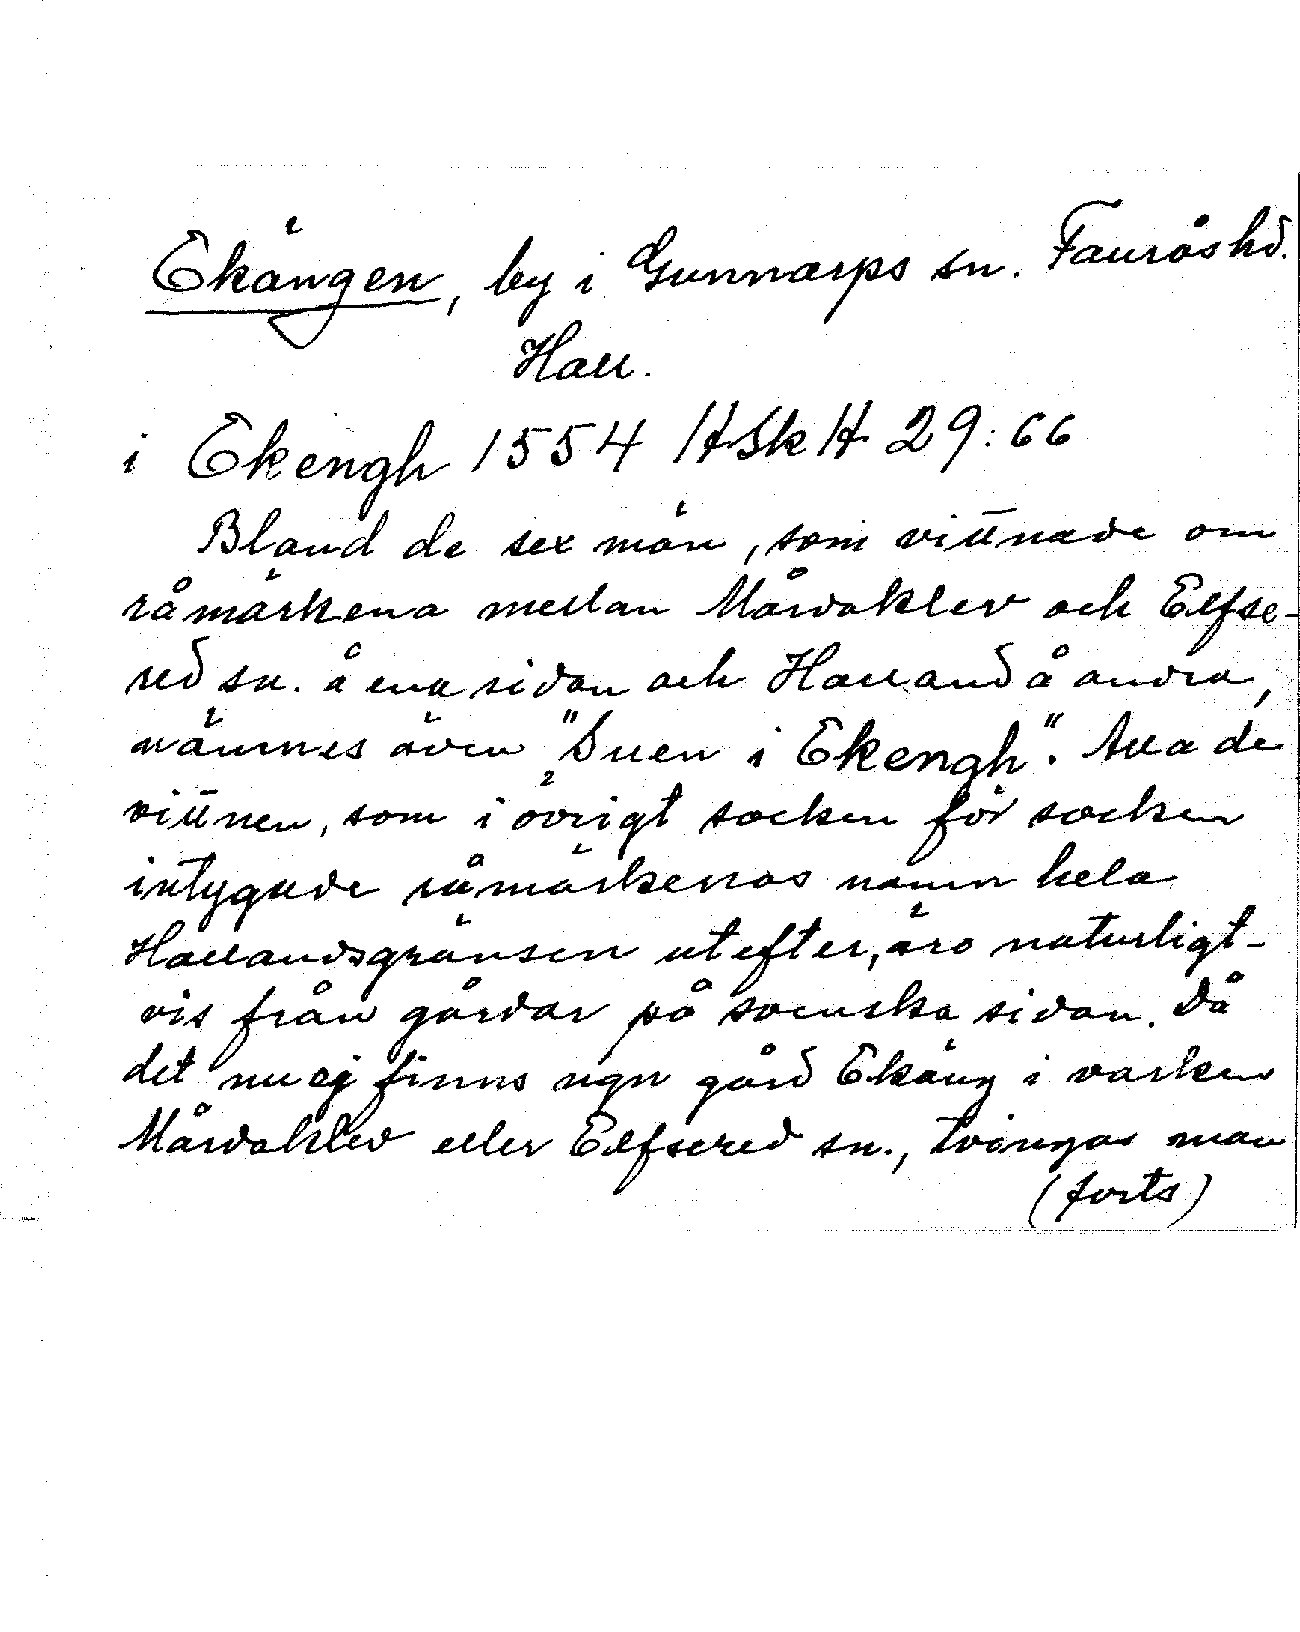 Ekängen, by i Gunnarps sn. Fauråshd.
Hall.
i Ekengh 1554 HSkH 29:66
Bland de sex män, som vittnade om
råmärkena mellan Mårdaklev och Elfse-
red sn. å ena sidan och Halland å andra,
nämnes även "Suen i Ekengh". Alla de
vittnen, som i övrigt socken för socken
intygade råmärkenas namn hela
Hallandsgränsen utefter, äro naturligt-
vis från gårdar på svenska sidan. Då
det nu ej finns ngn gård Ekäng i varken
Mårdaklev eller Elfsered sn., tvingas man
(forts)